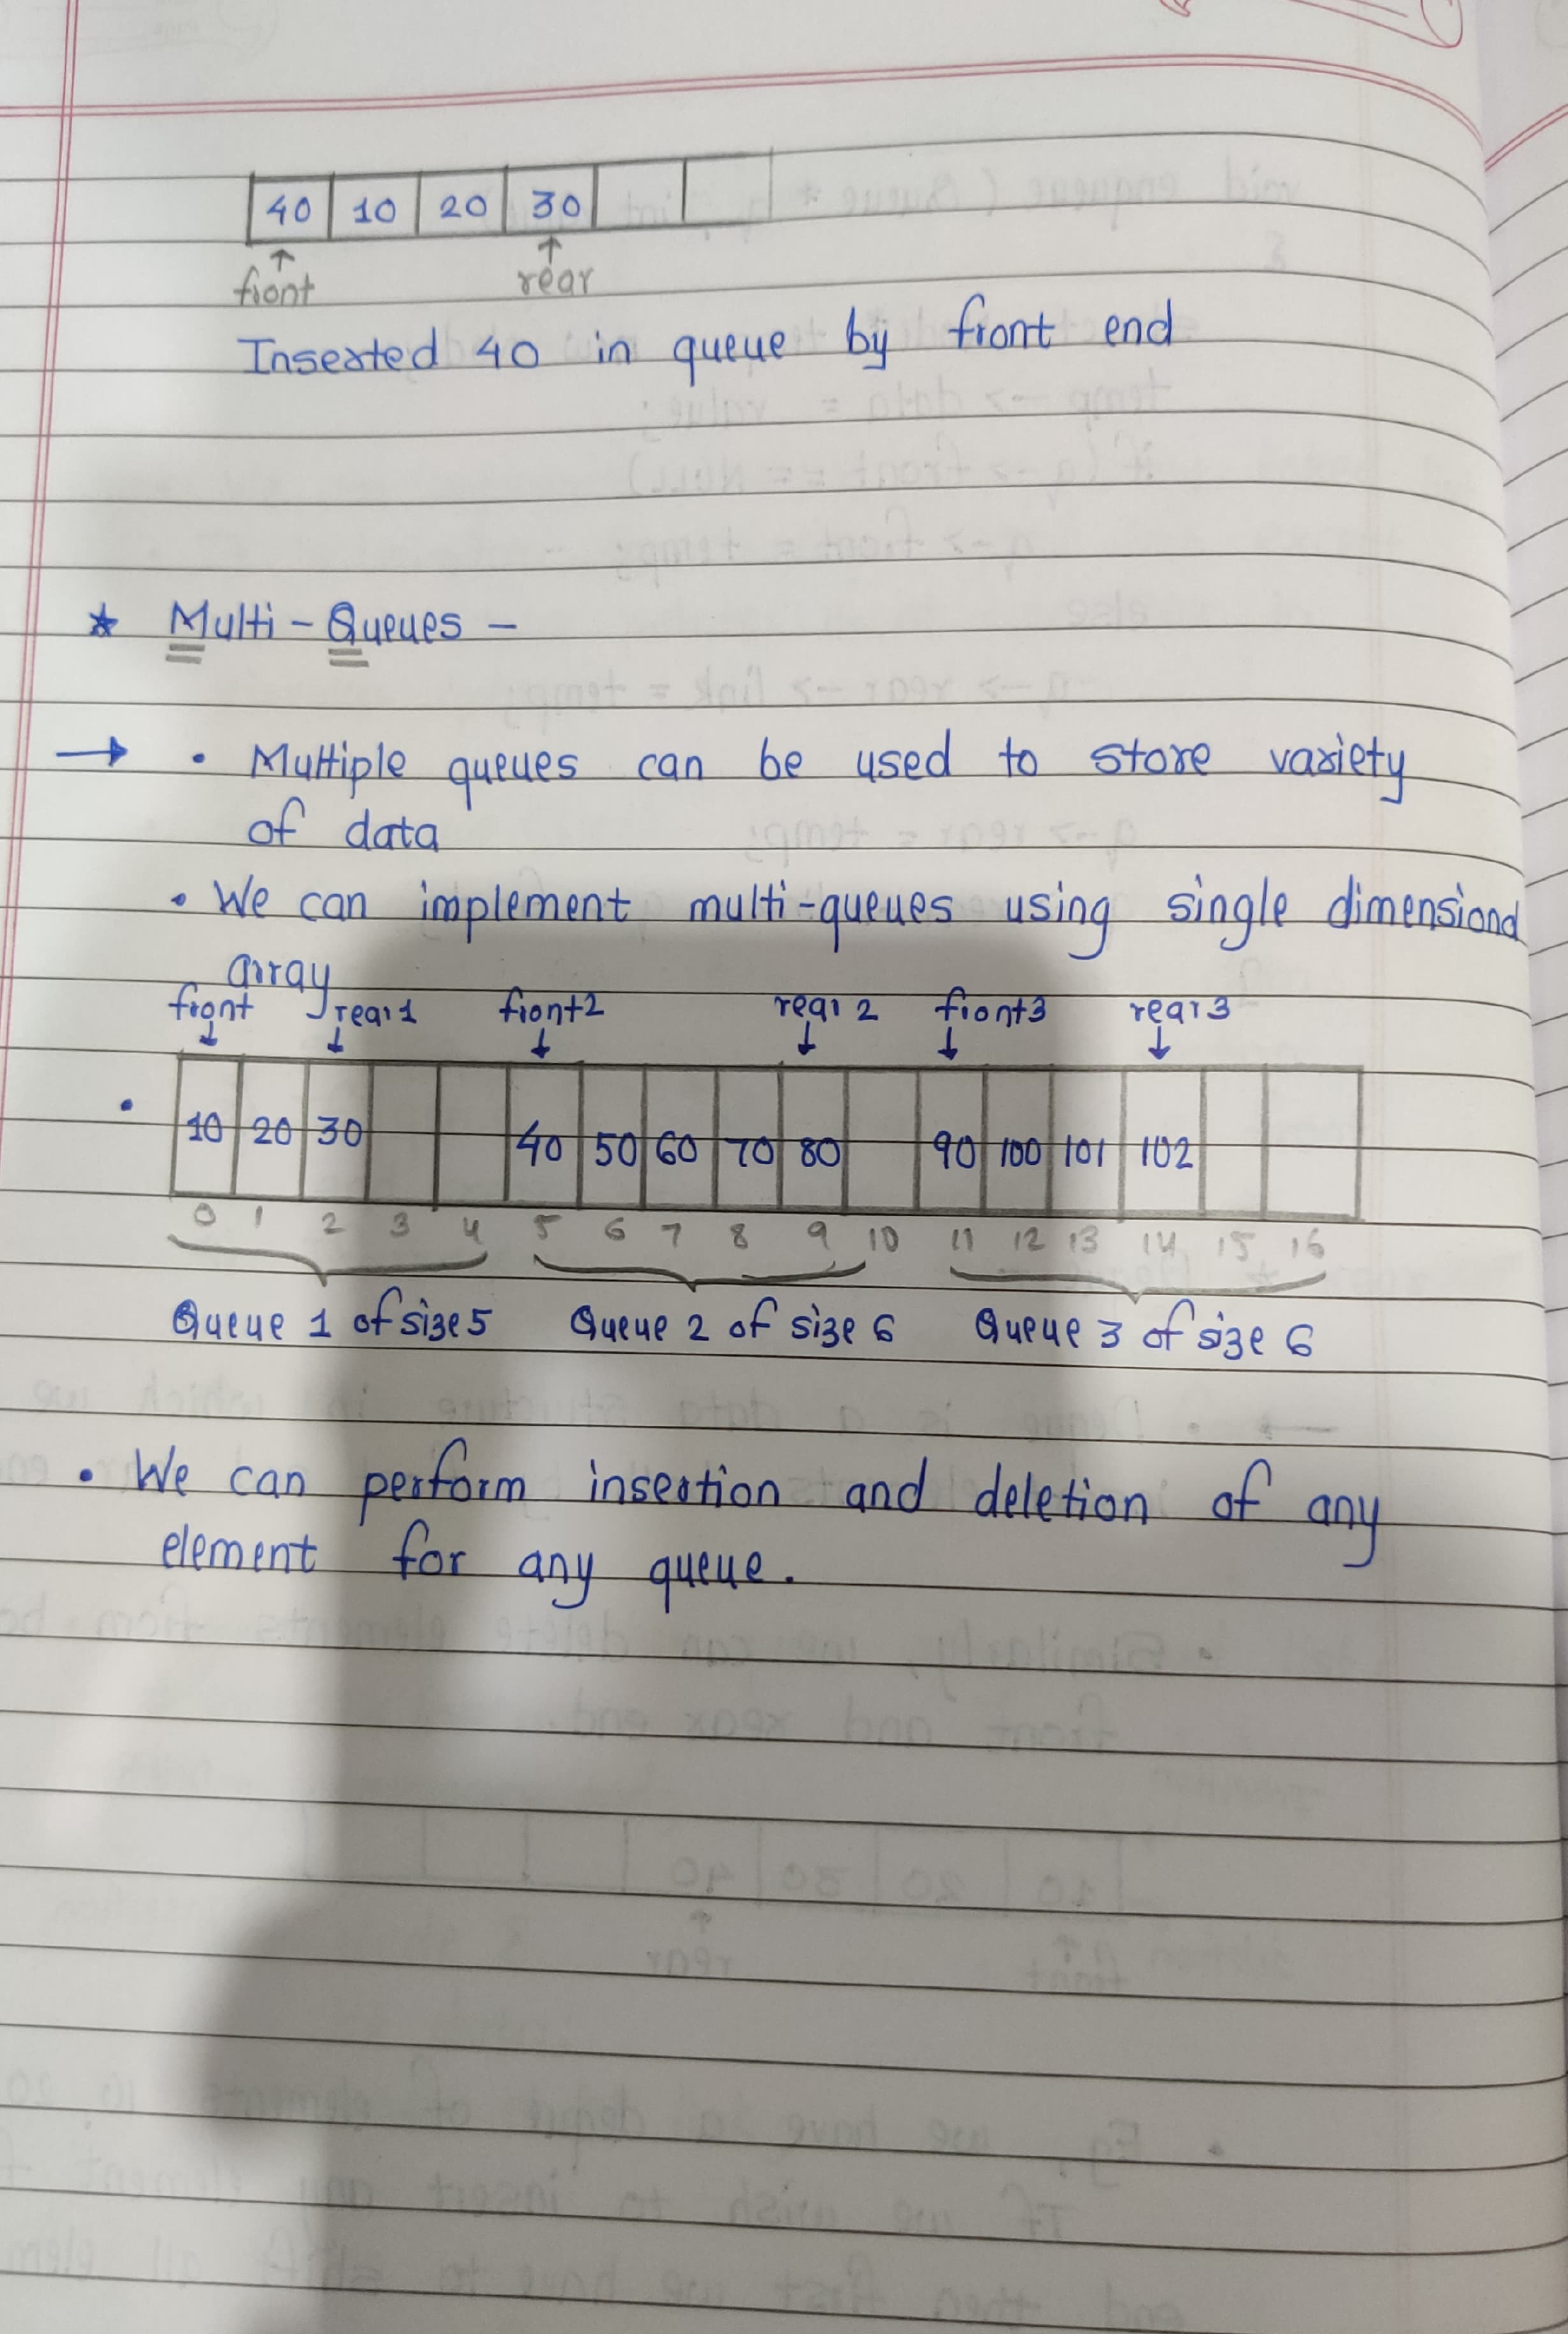 40 10 20 30
↑ front ↑ rear
Inserted 40 in queue by front end
* Multi - Queues -
→ • Multiple queues can be used to store variety
of data
• We can implement multi-queues using single dimensional
array
front rear1 front2 rear 2 front3 rear3
↓ ↓ ↓ ↓ ↓ ↓
• 10 20 30 40 50 60 70 80 90 100 101 102
0 1 2 3 4 5 6 7 8 9 10 11 12 13 14 15 16
Queue 1 of size 5 Queue 2 of size 6 Queue 3 of size 6
• We can perform insertion and deletion of any
element for any queue.